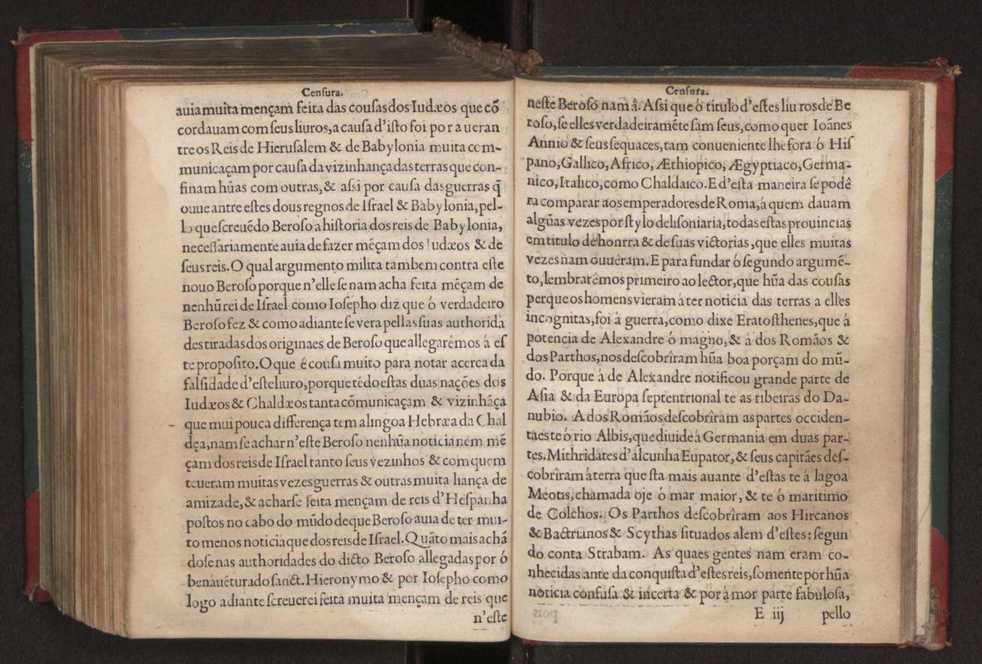 Censura.
auia muita mençam feita das cousas dos Iudæos que cõ
cordauam com seus liuros, a causa d'isto foi por a ueran
tre os Reis de Hierusalem & de Babylonia muita com-
municaçam por causa da vizinhança das terras que con-
finam hũas com outras, & assi por causa das guerras q̃
ouue antre estes dous regnos de Israel & Babylonia, pel-
lo que screuẽdo Beroso a historia dos reis de Babylonia,
necessariamente auia de fazer mẽçam dos Iudæos & de
seus reis. O qual argumento milita tambem contra este
nouo Beroso porque n'elle se nam acha feita mẽçam de
nenhũ rei de Israel como Iosepho diz que ó verdadeiro
Beroso fez & como adiante se vera pellas suas authorida
des tiradas dos originaes de Beroso que allegarêmos à es
te proposito. O que é cousa muito para notar acerca da
falsidade d'este liuro, porque tẽdo estas duas nações dos
Iudæos & Chaldæos tanta cõmunicaçam & vizinhãça
que mui pouca differença tem a lingoa Hebræa da Chal
dęa, nam se achar n'este Beroso nenhũa noticia nem mẽ
çam dos reis de Israel tanto seus vezinhos & com quem
teueram muitas vezes guerras & outras muita liança de
amizade, & acharse feita mençam de reis d'Hespanha
postos no cabo do mũdo de que Beroso auia de ter mui-
to menos noticia que dos reis de Israel. Quãto mais achã
dose nas authoridades do dicto Beroso allegadas por ó
benauẽturado sanct. Hieronymo & por Iosepho como
logo adiante screuerei feita muita mençam de reis que
n'este
Censura.
neste Beroso nam â. Assi que ó titulo d'estes liuros de Be
roso, se elles verdadeiramẽte sam seus, como quer Ioânes
Annio & seus sequaces, tam conueniente lhe fora ó His
pano, Gallico, Africo, Æthiopico, Ægyptiaco, Germa-
nico, Italico, como Chaldaico. E d'esta maneira se podẽ
ra comparar aos emperadores de Roma, á quem dauam
algũas vezes por stylo de lisoniaria, todas estas prouincias
em titulo de honrra & de suas victorias, que elles muitas
vezes nam ouuêram. E para fundar ó segundo argumẽ-
to, lembratêmos primeiro ao lector, que hũa das cousas
perque os homens vieram à ter noticia das terras a elles
incognitas, foi á guerra, como dixe Eratosthenes, que á
potencia de Alexandre ó magno, & á dos Romãos &
dos Parthos, nos descobrîram hũa boa porçam do mũ-
do. Porque á de Alexandre notificou grande parte de
Asia & da Europa septentrional te as ribeiras do Da-
nubio. A dos Romãos descobrîram as partes occiden-
taes te ó rio Albis, que diuide á Germania em duas par-
tes. Mithridates d'alcunha Eupator, & seus capitães des-
cobrîram à terra que sta mais auante d'estas te á lagoa
Mêotis, chamada oje ó mar maior, & te ó maritimo
de Colchos. Os Parthos descobrîram aos Hircanos
& Bactrianos & Scythas situados alem d'estes: segun
do conta Strabam. As quaes gentes nam eram co-
nhecidas ante da conquista d'estes reis, somente por hũa
noticia confusa & incerta & por á mor parte fabulosa,
E iij pello